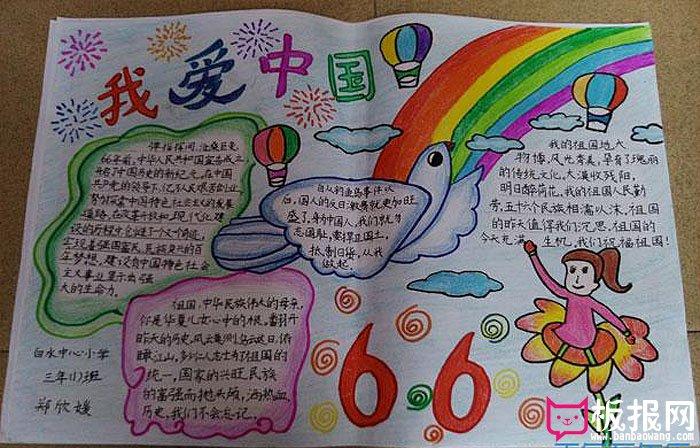 我爱中国
弹指一挥间,沧桑巨变。
66年前,中华人民共和国宣告成立
开启了中国历史的新纪元,在中国
共产党的领导下,亿万人民艰苦创业,
努力探索中国特色社会主义的发展
道路,在改革开放和现代化建
设的历程中创造了一个又一个奇迹,
实现着强国富民、民族复兴的百
年梦想,建设有中国特色社会
主义事业显示出强
大的生命力。
自从钓鱼岛事件以
后,国人的反日激愤就更加旺
盛了,身为中国人,我们就为
志国耻,要捍卫国土,
抵制日货,从我
做起。
我的祖国地大
物博,风光秀美,孕育了瑰丽
的传统文化,大漠收残阳,
明月醉荷花,我的祖国人民勤
劳,五十六个民族相濡以沫,祖国
的昨天值得我们沉思,祖国的
今天充满生机,我们祝福祖国!
祖国,中华民族伟大的母亲,
你是华夏儿女心中的根。翻开
昨天的历史,风云
江山,多少仁人志士为了祖国的
统一,国家的兴旺民族
的富强而抛头颅,洒热血
历史,我们不会忘记。
白水中心小学
三年(1)班
郑欣媛
66
板报网
www.banbaowang.com